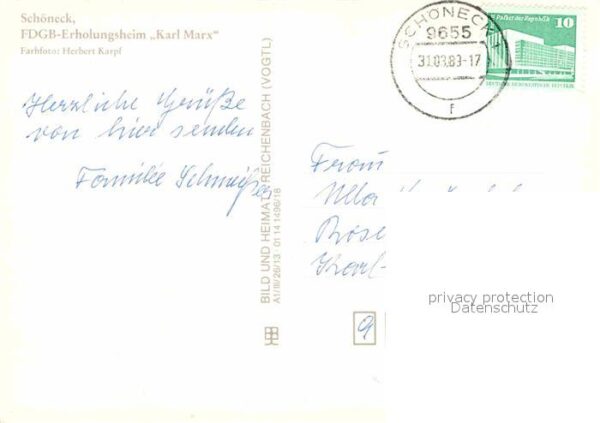 Schöneck,
FDGB-Erholungsheim „Karl Marx“
Farbfoto: Herbert Karpf
SCHÖNECK 1
9655
31.03.83-17
f
Palast der Republik 10
DEUTSCHE DEMOKRATISCHE REPUBLIK
Herzliche Grüße
von hier senden
Familie
BILD UND HEIMAT REICHENBACH (VOGTL)
A1/III/26/13 01 14 1496/16
Ulla
9
privacy protection
Datenschutz